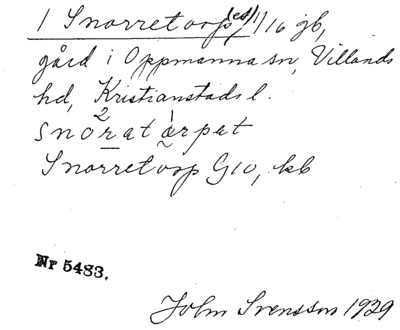 1 Snorretorp (et) 1/16 jb,
gård i Oppmanna sn, Villands
hd, Kristianstads l.
snoratàrpat
Snorretorp G10, kb
Nr 5483.
John Svensson 1929